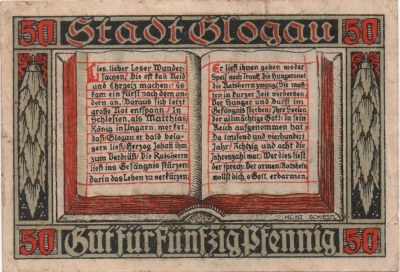 50 Stadt Glogau 50
Lies, lieber Leser Wunder-
sachen, Die oft kan Neid
und Ehrgeiz machen/ Es
kam ein Fürst nach dem an-
dern an, Daraus sich letzt
große Not entspann/ In
Schlesien, als Matthias,
König in Ungarn, merket,
daß Glogau er bald bela-
gern ließ, Herzog Johañ ihm
zum Verdrüß/ Die Ratsherrn
ließ ins Gefängnis stürzen,
Darin das Leben zu verkürzen.
Er ließ ihnen geben weder
Speis noch Trank/ Die Hungersnot
die Ratsherrn zwang/ Sie muß-
ten in kurzer Zeit verderben,
Vor Hunger und Durst im
Gefängnis sterben/ Ihre Seelen
der allmächtige Gott/ In sein
Reich aufgenommen hat/
Da tausend und vierhundert
Jahr/ Achtzig und acht die
Jahreszahl war. Wer dies liest
der sprech: Der armen Ratsherrn
wollst dich, o Gott, erbarmen.
HEINZ SCHIESTL
50 Gut für fünfzig Pfennig 50